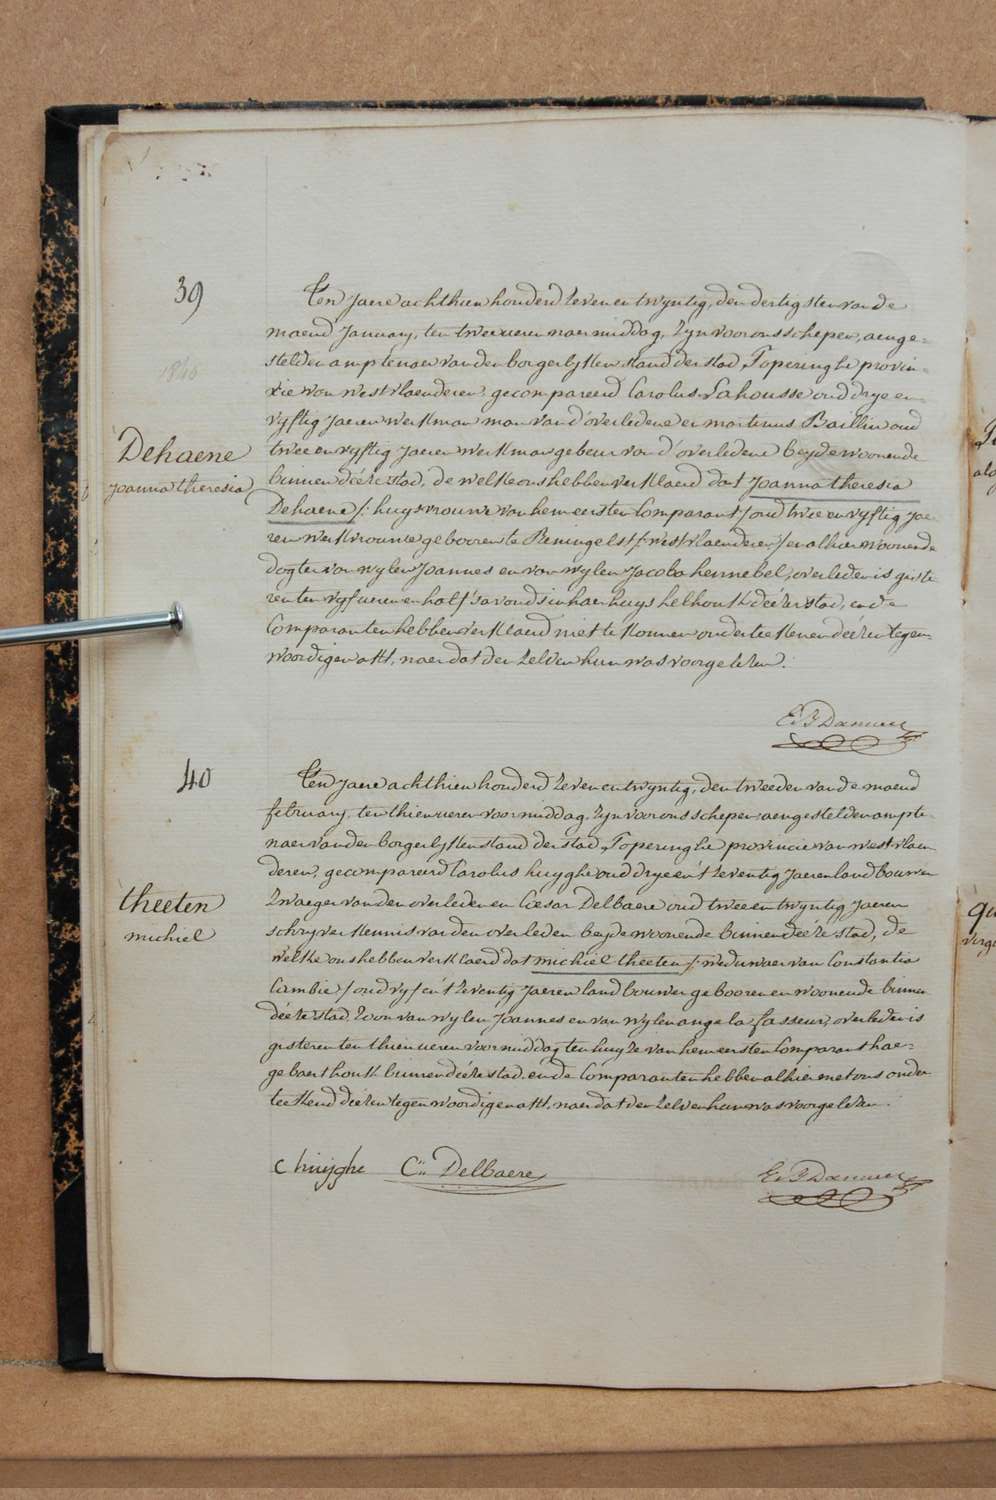 39
Dehaene
joanna theresia
Ten jaere achthien honderd zeven en twyntig, den dertigsten van de
maend january, ten twee ueren naer middag, zyn voor ons schepen, aenge-
stelden amptenaer van den borgerlyken stand der stad Poperinghe provin-
cie van westvlaenderen, gecompareerd Carolus Lahousse oud drye en
vyftig jaeren werkman man van d'overledene en martinus Baillin oud
twee en vyftig jaeren werkman gebeur van d'overledene beyde woonende
binnen déeze stad, de welke ons hebben verklaerd dat joanna theresia
Dehaene /: huysvrouwe van hem eersten Comparant / oud twee en vyftig jae-
ren werkvrouwe gebooren te Reningelst /: westvlaenderen / en alhier woonende
dogter van wylen joannes en van wylen jacoba hennebel, overleden is giste-
ren ten vyf ueren en half s'avonds in haer huys helhoutk déezer stad, en de
Comparanten hebben verklaerd niet te konnen onderteekenen déezen tegen-
woordigen akt, naer dat den zelven hun was voorgelezen.
40
theeten
michiel
Ten jaere achthien honderd zeven en twyntig, den tweeden van de maend
february, ten thien ueren voormiddag, zyn voor ons schepen aengestelden ampte-
naer van den borgerlyken stand der stad Poperinghe provincie van westvlaen-
deren, gecompareerd Carolus huyghe oud drye én t'zeventig jaeren landbouwer
zwaeger van den overleden en Cæsar Delbaere oud twee en twyntig jaeren
schryver kennis van den overleden beyde woonende binnen déeze stad, de
welke ons hebben verklaerd dat michiel theeten /: weduwaer van Constantia
Cambie / oud vyf én t'zeventig jaeren landbouwer gebooren en woonende binnen
déeze stad zoon van wylen joannes en van wylen angela fasseur, overleden is
gisteren ten thien ueren voormiddag ten huyze van hem eersten Comparant hae-
gebaerthoutk binnen déeze stad, en de Comparanten hebben alhier met ons onder-
teekend déezen tegenwoordigen akt, naer dat den zelven hun was voorgelezen.
C huijghe Cn Delbaere